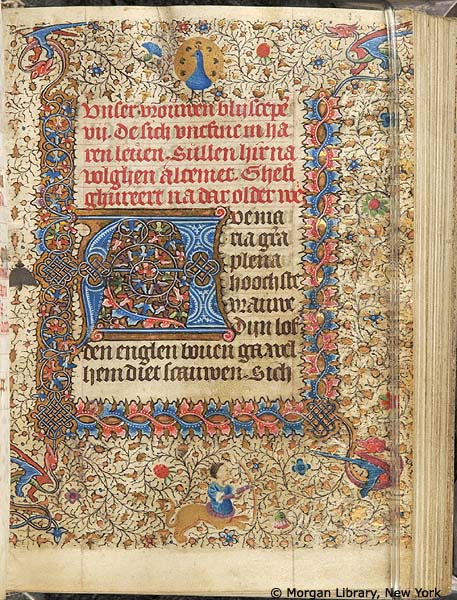 Vnser vrouwen bliscepe
vij. De sich vntfinc in ha
ren leuen. Sullen hir na
volghen altemet. Ghefi
ghureert na dar older we
Auema
ria gra
plena
hoochste
vrauwe
Dijn lof
den englen bouen gaet vel
hem diet scauwen. Sich
© Morgan Library, New York